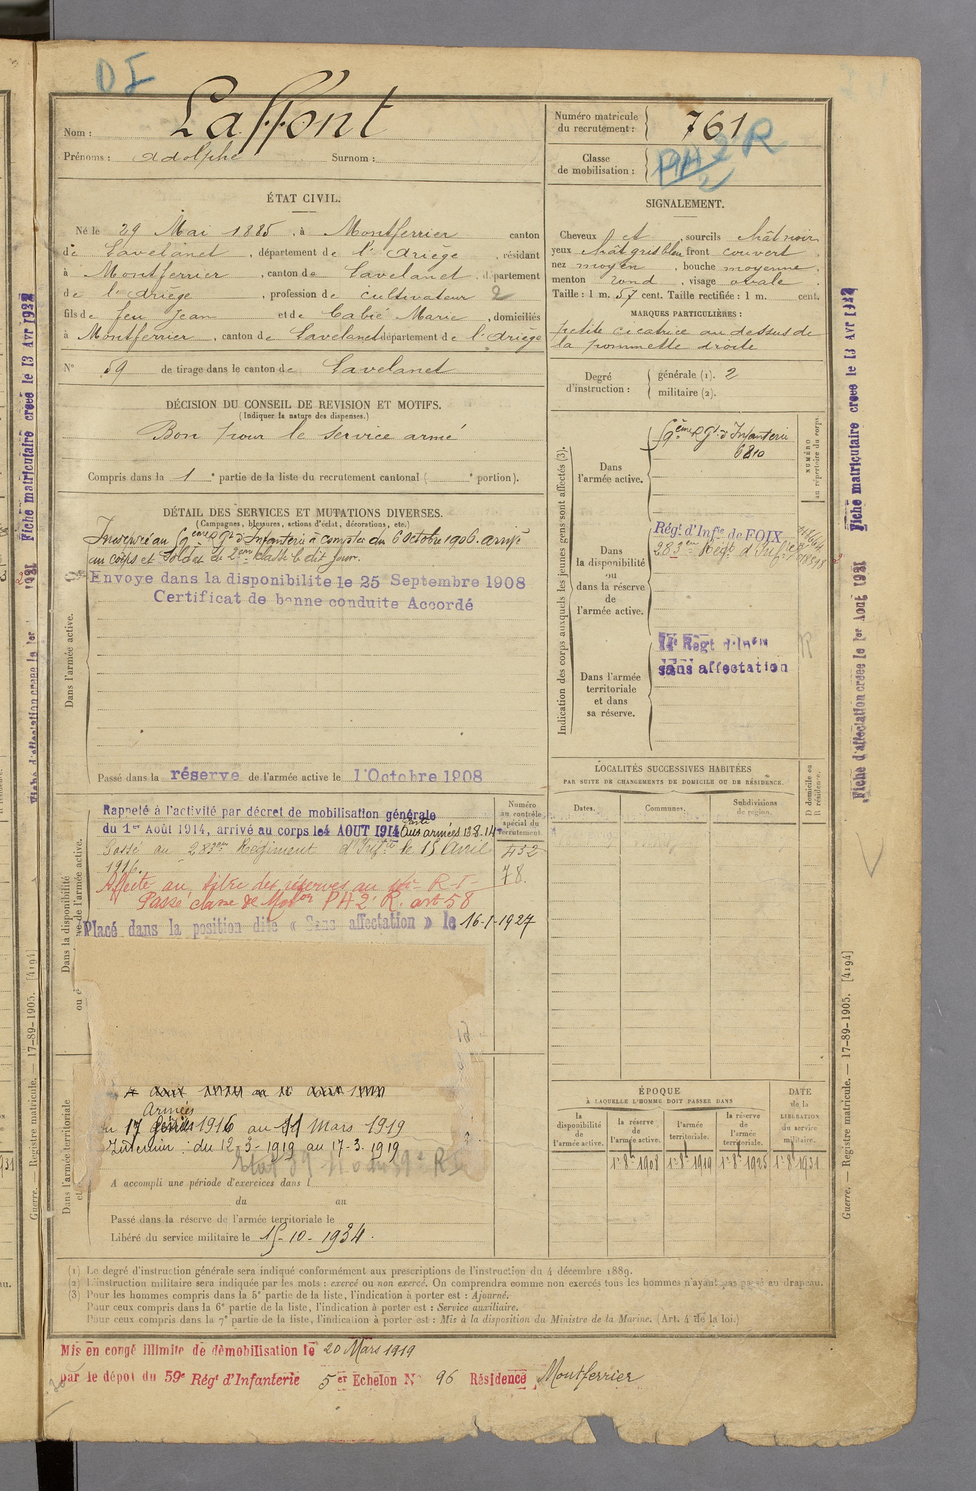 D I
Nom : Laffont
Prénoms : Adolphe Surnom :
Numéro matricule du recrutement : 761
Classe de mobilisation : PA 2 R
ÉTAT CIVIL.
Né le 29 Mai 1885, à Montferrier canton
de Lavelanet, département de l'Ariège, résidant
à Montferrier, canton de Lavelanet, département
de l'Ariège, profession de cultivateur 2
fils de feu Jean et de Cabié Marie, domiciliés
à Montferrier, canton de Lavelanet département de l'Ariège
N° 59 de tirage dans le canton de Lavelanet
SIGNALEMENT.
Cheveux et, sourcils chât noir
yeux chât gris bleu front couvert
nez moyen, bouche moyenne
menton rond, visage ovale
Taille : 1 m. 57 cent. Taille rectifiée : 1 m. cent.
MARQUES PARTICULIÈRES :
petite cicatrice au dessus de
la pommette droite
Degré d'instruction : générale (1). 2
militaire (2).
DÉCISION DU CONSEIL DE REVISION ET MOTIFS.
(Indiquer la nature des dispenses.)
Bon pour le service armé
Compris dans la 1e partie de la liste du recrutement cantonal ( e portion).
DÉTAIL DES SERVICES ET MUTATIONS DIVERSES.
(Campagnes, blessures, actions d'éclat, décorations, etc.)
Incorporé au 9ème Rgt d'Infanterie à compter du 6 Octobre 1906. arrivé
au corps et soldat de 2ème classe le dit jour.
Envoye dans la disponibilite le 25 Septembre 1908
Certificat de bonne conduite Accordé
Dans l'armée active.
Passé dans la réserve de l'armée active le 1 Octobre 1908
Rappelé à l'activité par décret de mobilisation générale
du 1er Août 1914, arrivé au corps le 4 AOUT 1914 Aux armées 13.8.14
Passé au 283ème Régiment d'Infie le 15 Avril
1916.
Affecté au titre des réserves au R.I.
Passé classe de Mobon PA2 R. art 58
Placé dans la position dite « Sans affectation » le 16-1-1927
Numéro au contrôle spécial du recrutement.
432
78.
Armées
17 1916 au 11 Mars 1919
Intérieur : du 12-3-1919 au 17-3-1919
A accompli une période d'exercices dans l
du au
Passé dans la réserve de l'armée territoriale le
Libéré du service militaire le 15-10-1934.
Dans l'armée territoriale
Indication des corps auxquels les jeunes gens sont affectés (3).
NUMÉRO au répertoire du corps.
Dans l'armée active.
9ème Rgt d'Infanterie
6810
Dans la disponibilité ou dans la réserve de l'armée active.
Régt d'Infie de FOIX
283ème Régt d'Infie
Dans l'armée territoriale et dans sa réserve.
Régt d'Infie
sans affectation
LOCALITÉS SUCCESSIVES HABITÉES
PAR SUITE DE CHANGEMENTS DE DOMICILE OU DE RÉSIDENCE.
Dates. Communes. Subdivisions de région. D domicile ou R résidence.
ÉPOQUE
À LAQUELLE L'HOMME DOIT PASSER DANS
DATE de la LIBÉRATION du service militaire.
la disponibilité de l'armée active. la réserve de l'armée active. l'armée territoriale. la réserve de l'armée territoriale.
1er 8bre 1908 1er 8bre 1919 1er 8bre 1925 1er 8bre 1931
(1) Le degré d'instruction générale sera indiqué conformément aux prescriptions de l'instruction du 4 décembre 1889.
(2) L'instruction militaire sera indiquée par les mots : exercé ou non exercé. On comprendra comme non exercés tous les hommes n'ayant pas passé au drapeau.
(3) Pour les hommes compris dans la 5e partie de la liste, l'indication à porter est : Ajourné.
Pour ceux compris dans la 6e partie de la liste, l'indication à porter est : Service auxiliaire.
Pour ceux compris dans la 7e partie de la liste, l'indication à porter est : Mis à la disposition du Ministre de la Marine. (Art. 4 de la loi.)
Mis en congé illimité de démobilisation le 20 Mars 1919
par le dépôt du 59e Régt d'Infanterie 5er Echelon N° 96 Résidence Montferrier
Fiche matriculaire créée le 13 Avr 1932
Fiche d'affectation créée le 1er Aout 1931
Guerre. — Registre matricule. — 17-89-1905. [4194]